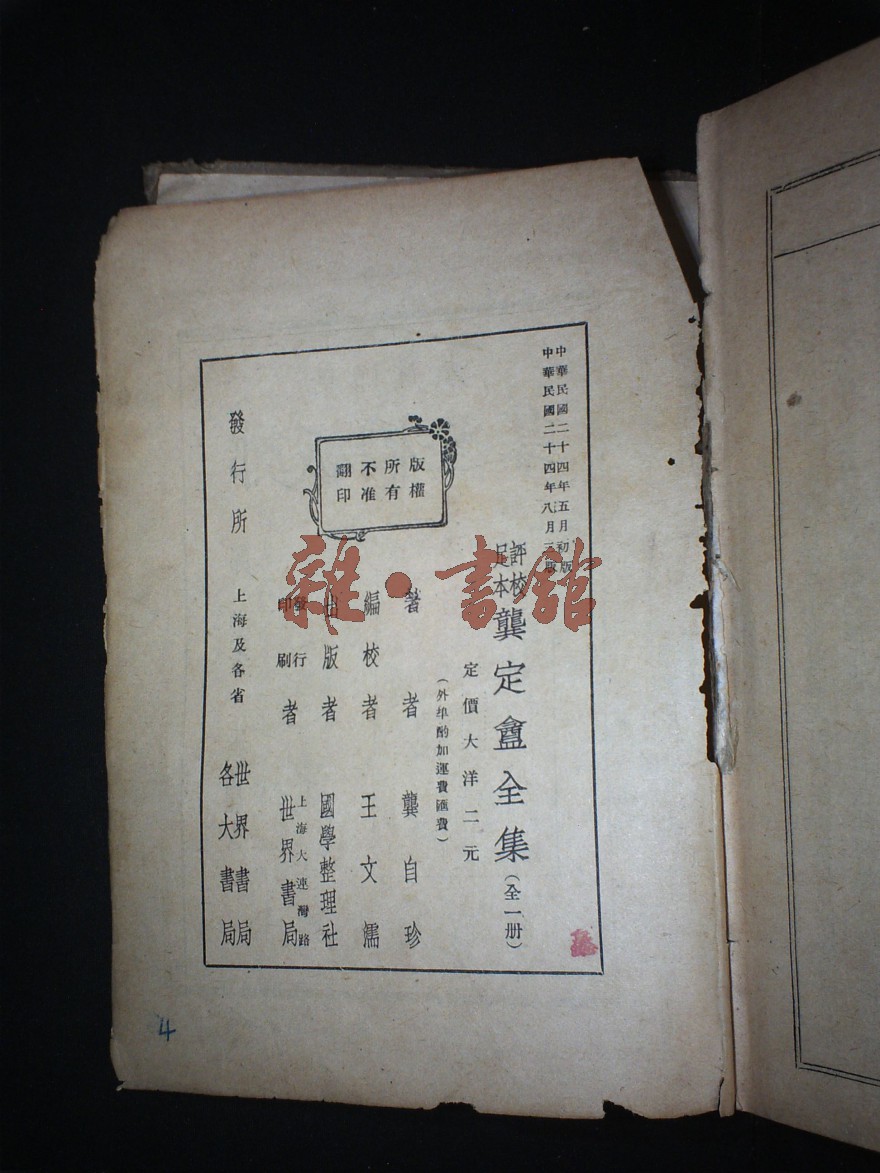 中華民國二十四年五月初版
中華民國二十四年八月三版
評校
足本
龔定盦全集(全一册)
定價大洋二元
(外埠酌加運費匯費)
版權
所有
不准
翻印
著者 龔自珍
編校者 王文濡
出版者 國學整理社
發行
印刷
者
上海大連灣路
世界書局
發行所 上海及各省
世界書局
各大書局
雜·書館
4